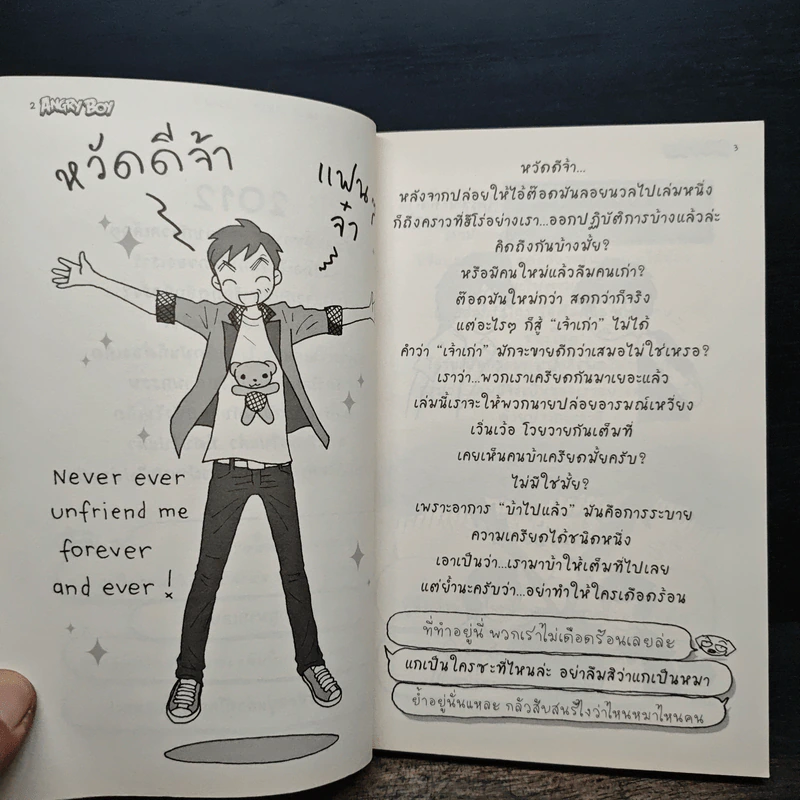 2 ANGRY BOY
หวัดดีจ้า
แฟน
จ๋า
Never ever
unfriend me
forever
and ever !
3
หวัดดีจ้า...
หลังจากปล่อยให้ไอ้ต๊อดมันลอยนวลไปเล่มหนึ่ง
ก็ถึงคราวที่ฮีโร่อย่างเรา...ออกปฏิบัติการบ้างแล้วล่ะ
คิดถึงกันบ้างมั้ย?
หรือมีคนใหม่แล้วลืมคนเก่า?
ต๊อดมันใหม่กว่า สดกว่าก็จริง
แต่อะไรๆ ก็สู้ “เจ้าเก่า” ไม่ได้
คำว่า “เจ้าเก่า” มักจะขายดีกว่าเสมอไม่ใช่เหรอ?
เราว่า...พวกเราเครียดกันมาเยอะแล้ว
เล่มนี้เราจะให้พวกนายปล่อยอารมณ์เหวี่ยง
เวิ่นเว้อ โวยวายกันเต็มที่
เคยเห็นคนบ้าเครียดมั้ยครับ?
ไม่มีใช่มั้ย?
เพราะอาการ “บ้าไปแล้ว” มันคือการระบาย
ความเครียดได้ชนิดหนึ่ง
เอาเป็นว่า...เรามาบ้าให้เต็มที่ไปเลย
แต่ย้ำนะครับว่า...อย่าทำให้ใครเดือดร้อน
ที่ทำอยู่นี่ พวกเราไม่เดือดร้อนเลยล่ะ
แกเป็นใครซะที่ไหนล่ะ อย่าลืมสิว่าแกเป็นหมา
ย้ำอยู่นั่นแหละ กลัวสับสนรึไงว่าไหนหมาไหนคน